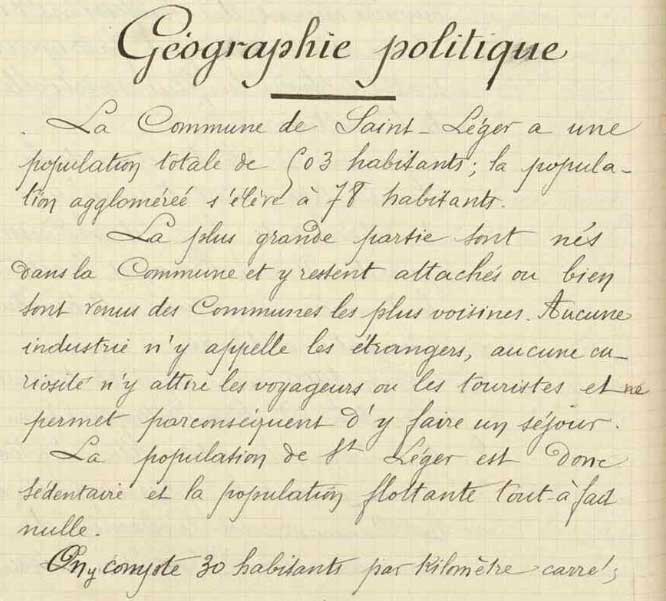 Géographie politique
La Commune de Saint-Léger a une
population totale de 503 habitants ; la popula-
tion aggloméréé s'élève à 78 habitants.
La plus grande partie sont nés
dans la Commune et y restent attachés ou bien
sont venus des Communes les plus voisines. Aucune
industrie n'y appelle les étrangers, aucune cu-
riosité n'y attire les voyageurs ou les touristes et ne
permet parconséquent d'y faire un séjour.
La population de St Léger est donc
sédentaire et la population flottante tout-à-fait
nulle.
On y compte 30 habitants par Kilomètre carré ;